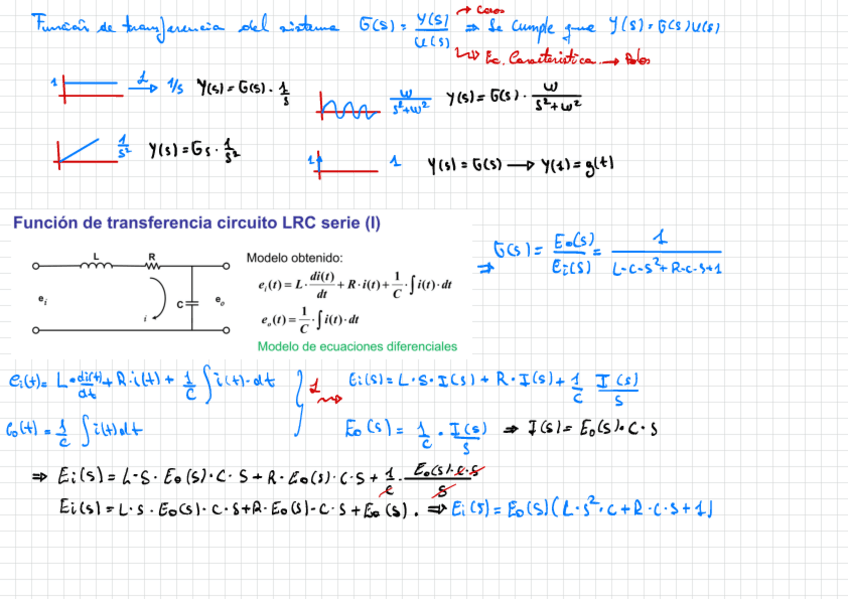 Función de transferencia del sistema G(s) = Y(s)/U(s) ⇒ Se cumple que Y(s) = G(s)U(s)
→ Ceros
↳ Ec. Característica → Polos
1 L→ 1/s Y(s) = G(s) · 1/s
w/(s²+w²) Y(s) = G(s) · w/(s²+w²)
1/s² Y(s) = Gs · 1/s²
1 1 Y(s) = G(s) → Y(t) = g(t)
Función de transferencia circuito LRC serie (I)
L R C i e_i e_o
Modelo obtenido:
e_i(t) = L · di(t)/dt + R · i(t) + 1/C · ∫ i(t) · dt
e_o(t) = 1/C · ∫ i(t) · dt
Modelo de ecuaciones diferenciales
⇒ G(s) = Eo(s)/Ei(s) = 1/(L·C·s²+R·C·s+1)
ei(t) = L · di(t)/dt + R · i(t) + 1/C ∫ i(t) · dt
eo(t) = 1/C ∫ i(t) dt
L
Ei(s) = L · S · I(s) + R · I(s) + 1/C I(s)/S
Eo(s) = 1/C · I(s)/S ⇒ I(s) = Eo(s) · C · S
⇒ Ei(s) = L · S · Eo(s) · C · S + R · Eo(s) · C · S + 1/C · Eo(s) · C · S/S
Ei(s) = L · S · Eo(s) · C · S + R · Eo(s) · C · S + Eo(s). ⇒ Ei(s) = Eo(s) (L · s² · C + R · C · S + 1)